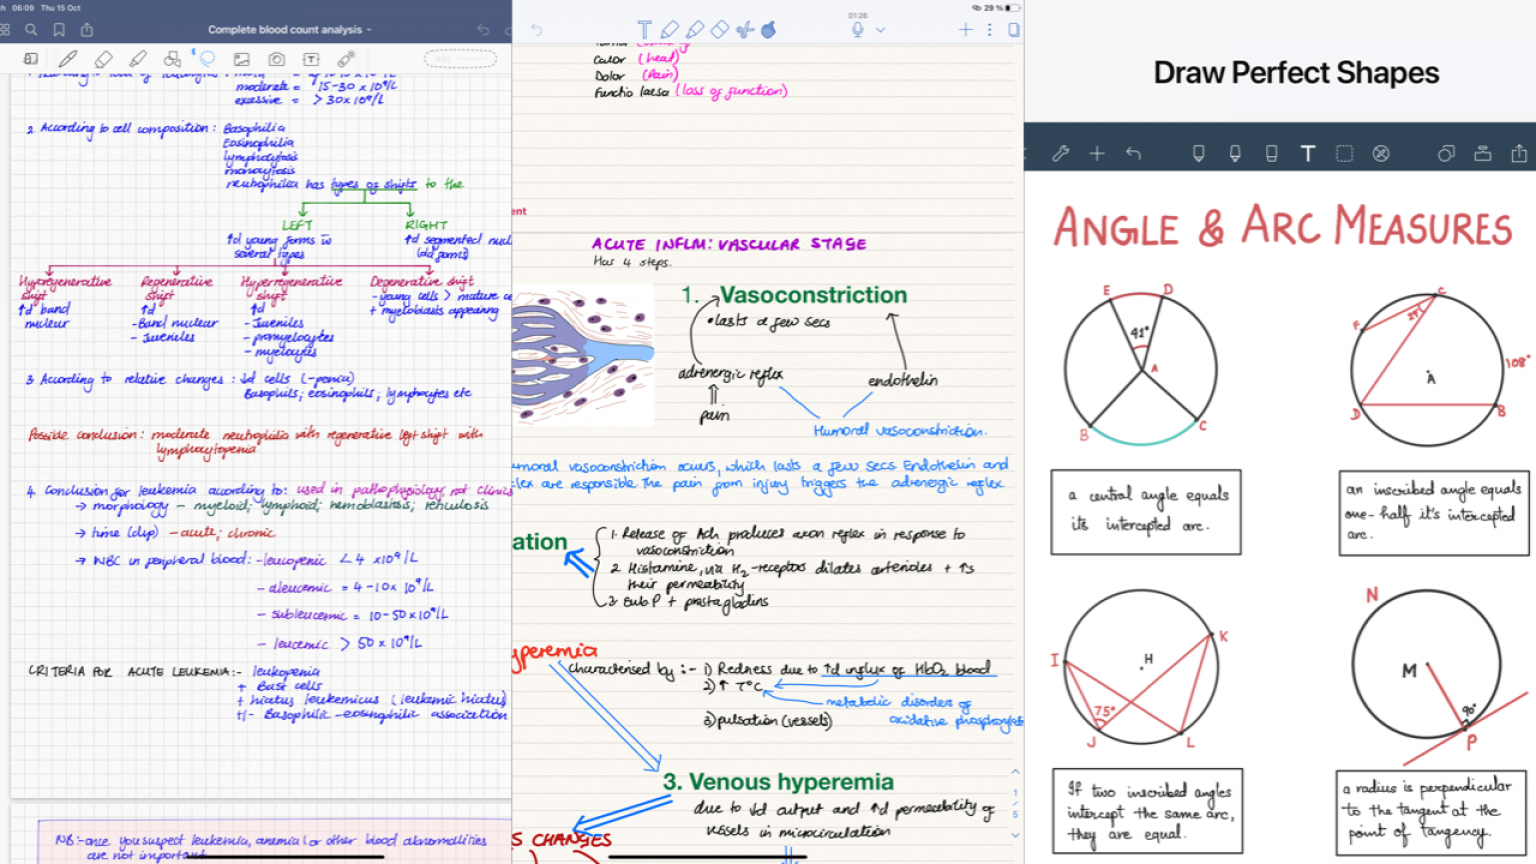 06:09 Thu 15 Oct
Complete blood count analysis
moderate = 15-30 x 10⁹/L
excessive = > 30x 10⁹/L
2. According to cell composition: Basophilia
Eosinophilia
lymphocytosis
monocytosis
neutrophilia has types of shifts to the
LEFT
RIGHT
↑d young forms in
several types
↑d segmented nucl
(old forms)
Hyporegenerative
shift
↑d band
nuclear
Regenerative
shift
↑d
- Band nuclear
- Juveniles
Hyperregenerative
shift
↑d
- Juveniles
- promyelocytes
- myelocytes
Degenerative shift
- young cells > mature ce
+ myeloblasts appearing
3. According to relative changes: ↓d cells (-penia)
Basophils; eosinophils; lymphocytes etc
Possible conclusion: moderate neutrophilia with regenerative left shift with
lymphocytopenia.
4. Conclusion for leukemia according to: used in pathophysiology not clinics
→ morphology - myeloid; lymphoid; hemoblastosis; reticulosis
→ time (dip) - acute; chronic
→ WBC in peripheral blood: - leucopenic < 4 x10⁹/L
- aleucemic = 4-10x 10⁹/L
- subleucemic = 10-50x10⁹/L
- leucemic > 50 x 10⁹/L
CRITERIA FOR ACUTE LEUKEMIA:- leukopenia
+ Blast cells
+ hiatus leukemicus (leukemic hiatus)
+/- Basophilic-eosinophilic association
NB:- once you suspect leukemia, anemia (or other blood abnormalities
are not important
01:26
29 %
Calor (heat)
Dolor (Pain)
Functio laesa (loss of function)
ent
ACUTE INFLM: VASCULAR STAGE
Has 4 steps.
1. Vasoconstriction
• lasts a few secs
adrenergic reflex
endothelin
pain
Humoral vasoconstriction.
umoral vasoconstriction occurs, which lasts a few secs Endothelin and
lex are responsible the pain from injury triggers the adrenergic reflex
ation
1. Release of Ach produces axon reflex in response to
vasoconstriction
2. Histamine, via H₂-receptos dilates arterioles + ↑s
their permeability
3. sub P + prostagladins
yperemia
Characterised by :- 1) Redness due to ↑d influx of HbO₂ blood
2) ↑ T°C
metabolic disorders of
oxidative phosphorylat
3) pulsation (vessels)
3. Venous hyperemia
due to ↓d output and ↑d permeability of
vessels in microcirculation
S CHANGES
1
5
Draw Perfect Shapes
T
ANGLE & ARC MEASURES
E
D
41°
A
B
C
C
F
27°
108°
A
D
B
a central angle equals
its intercepted arc.
an inscribed angle equals
one-half it's intercepted
arc.
I
H
K
75°
J
L
N
M
90°
P
If two inscribed angles
intercept the same arc,
they are equal.
a radius is perpendicular
to the tangent at the
point of tangency.